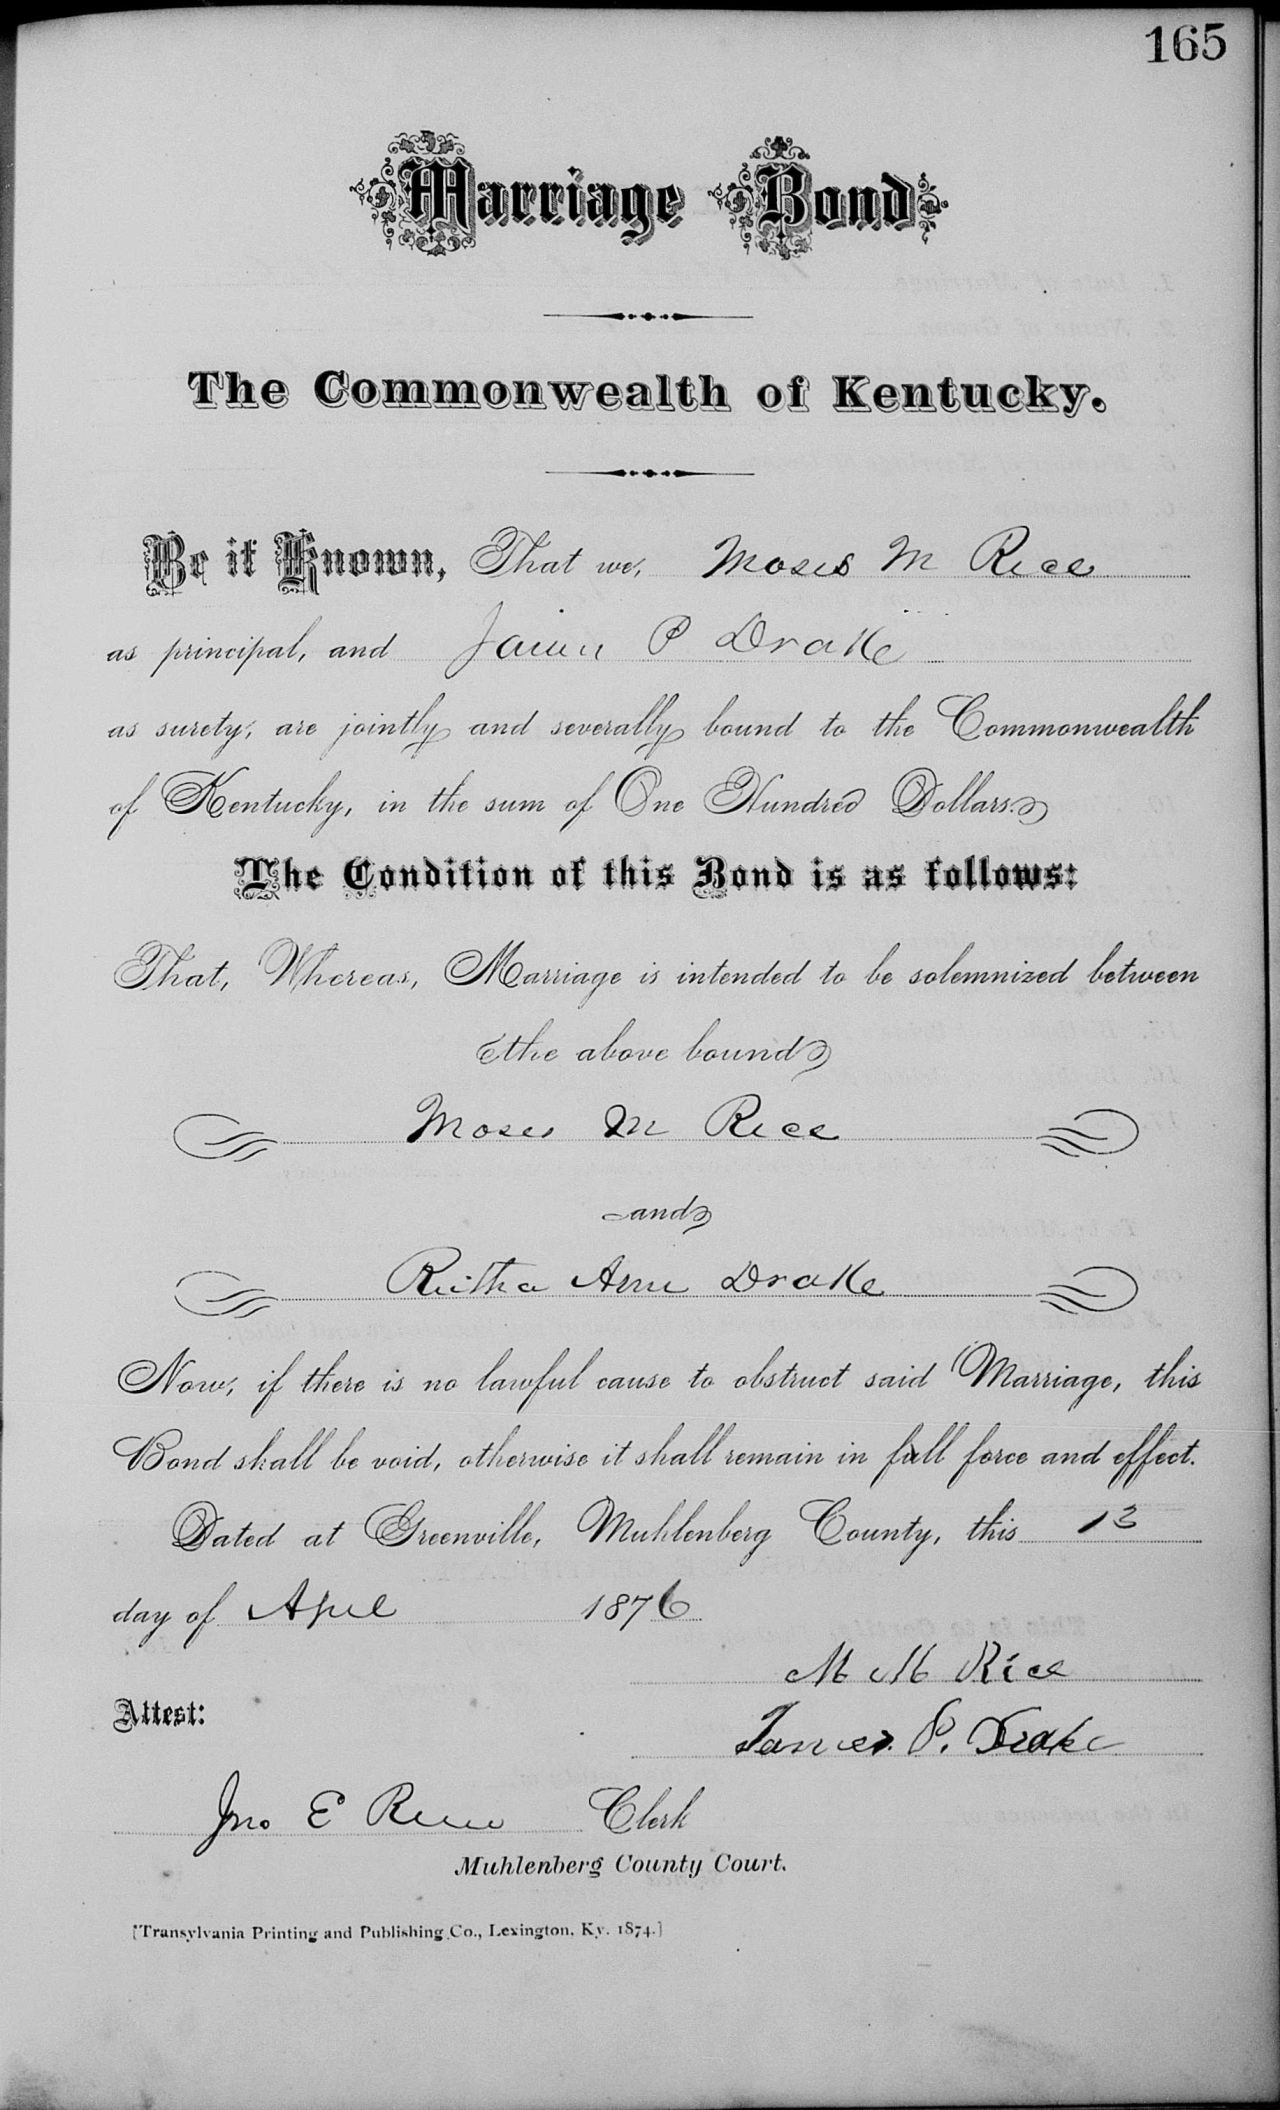 165
Marriage Bond
The Commonwealth of Kentucky.
Be it Known, That we, Moses M Rice
as principal, and James P Drake
as surety, are jointly and severally bound to the Commonwealth
of Kentucky, in the sum of One Hundred Dollars.
The Condition of this Bond is as follows:
That, Whereas, Marriage is intended to be solemnized between
the above bound
Moses M Rice
and
Ritha Ann Drake
Now, if there is no lawful cause to obstruct said Marriage, this
Bond shall be void, otherwise it shall remain in full force and effect.
Dated at Greenville, Muhlenberg County, this 13
day of April 1876
M M Rice
Attest:
James P. Drake
Jno E Reno Clerk
Muhlenberg County Court.
[Transylvania Printing and Publishing Co., Lexington, Ky. 1874.]